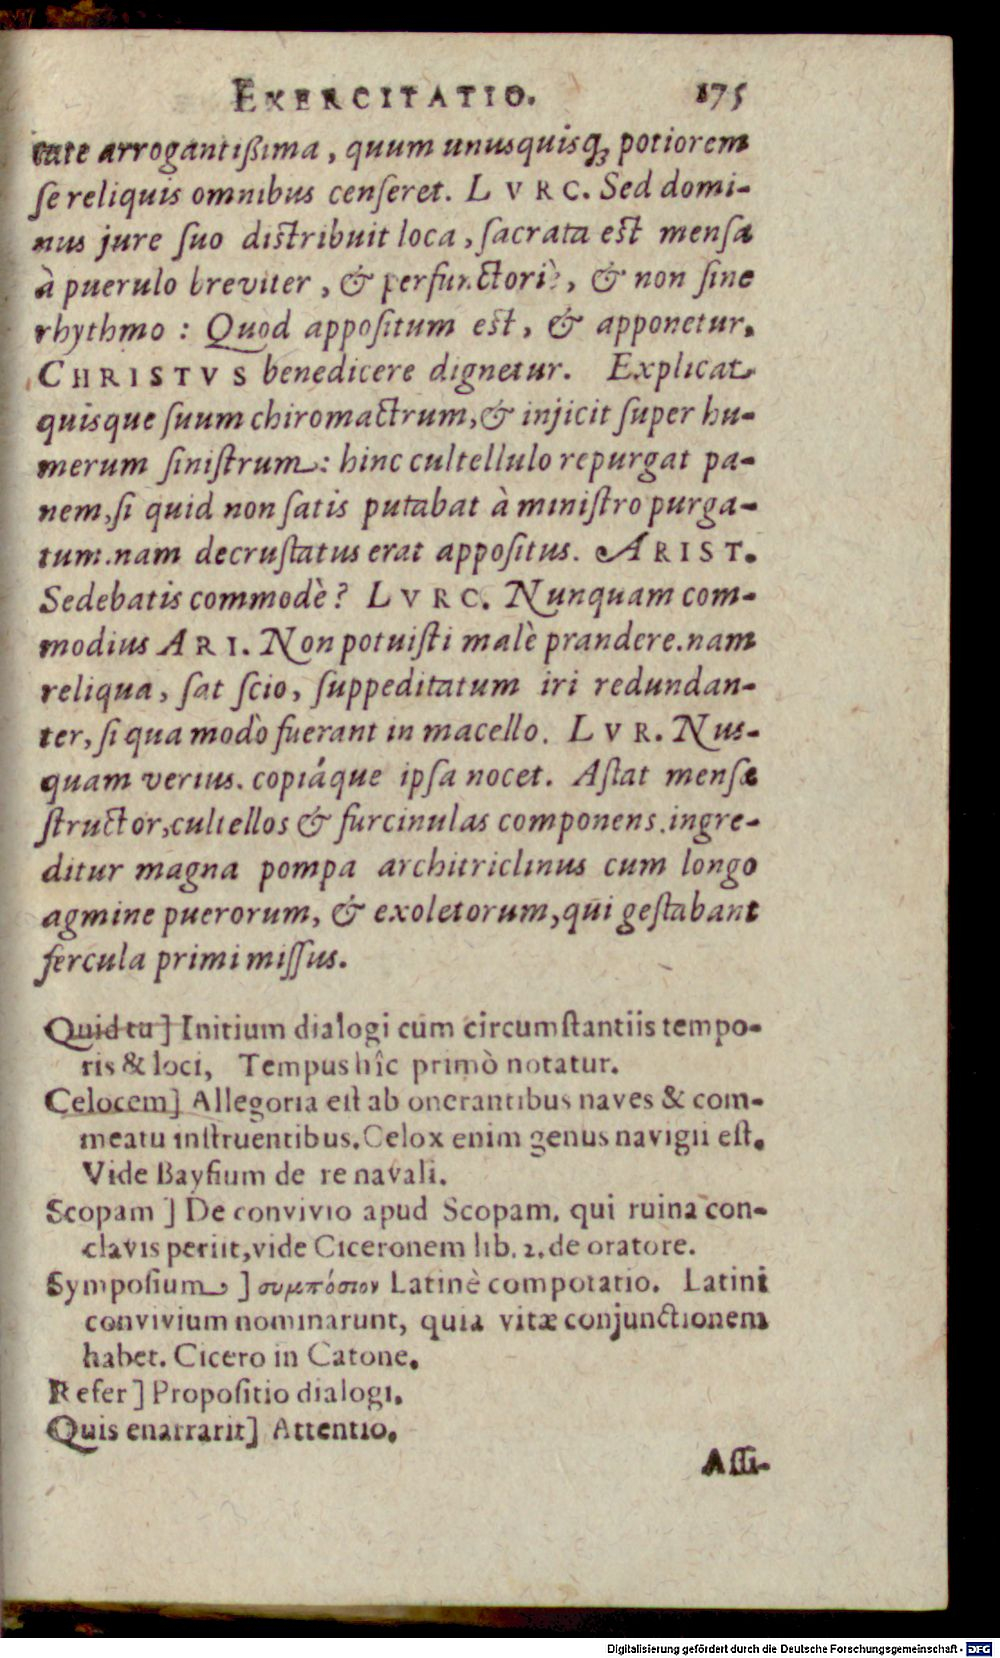 EXERCITATIO. 175
tate arrogantißima, quum unusquisq; potiorem
ſe reliquis omnibus cenſeret. LVRC. Sed domi-
nus jure ſuo diſtribuit loca, ſacrata eſt menſa
à puerulo breviter, & perfunctoriè, & non ſine
rhythmo: Quod appoſitum eſt, & apponetur,
CHRISTVS benedicere dignetur. Explicat
quisque ſuum chiromactrum, & injicit ſuper hu-
merum ſiniſtrum: hinc cultellulo repurgat pa-
nem, ſi quid non ſatis putabat à miniſtro purga-
tum. nam decruſtatus erat appoſitus. ARIST.
Sedebatis commodè? LVRC. Nunquam com-
modius ARI. Non potuiſti malè prandere. nam
reliqua, ſat ſcio, ſuppeditatum iri redundan-
ter, ſi qua modò fuerant in macello. LVR. Nus-
quam verius. copiáque ipſa nocet. Aſtat menſæ
ſtructor, cultellos & furcinulas componens. ingre-
ditur magna pompa architriclinus cum longo
agmine puerorum, & exoletorum, qui geſtabant
fercula primi miſſus.
Quid tu] Initium dialogi cum circumſtantiis tempo-
ris & loci, Tempus hîc primò notatur.
Celocem] Allegoria eſt ab onerantibus naves & com-
meatu inſtruentibus. Celox enim genus navigii eſt.
Vide Bayfium de re navali.
Scopam] De convivio apud Scopam, qui ruina con-
clavis periit, vide Ciceronem lib. 2. de oratore.
Sympoſium] συμπόσιον Latinè compotatio. Latini
convivium nominarunt, quia vitæ conjunctionem
habet. Cicero in Catone.
Refer] Propoſitio dialogi.
Quis enarrarit] Attentio.
Aſſi-
Digitalisierung gefördert durch die Deutsche Forschungsgemeinschaft - DFG